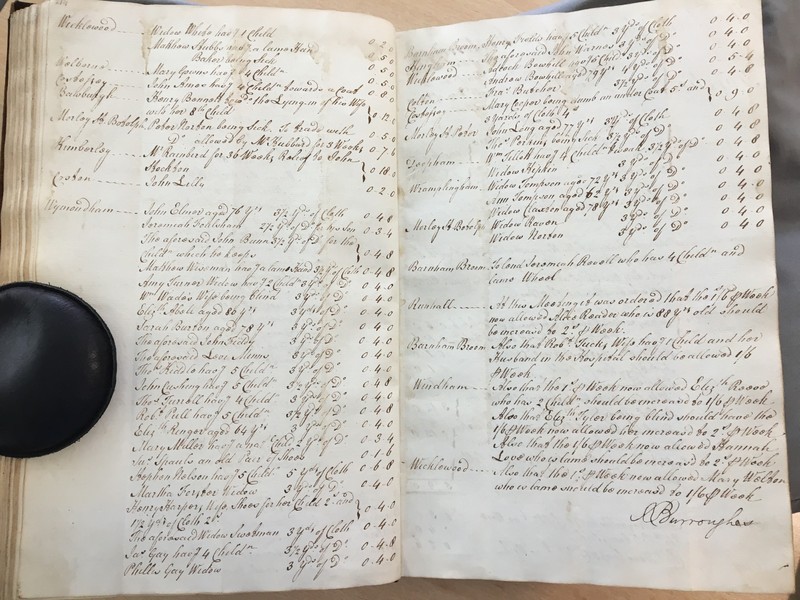 Wicklewood Widow White has 1 Child
Matthew Stubbs has a lame Hand 0 . 2 . 0
Baker being Sick 0 . 5 . 0
Welborne Mary Gowns has 4 Child.n 0 . 5 . 0
Costessy John Amos has 4 Child.n towards a Coat 0 . 8 . 0
Bawburgh Henry Bennett tow.ds the Lying in of his Wife
with her 8.th Child 0 . 12 . 0
Morley St Botolph Peter Norton being Sick. To trade with 0 . 5 . 0
D.o allowed by M.r Hubbard for 3 Weeks 0 . 7 . 6
Kimberley M.r Rainberd for 36 Weeks Relief to John
Stockton 0 . 18 . 0
Coston John Lilly 0 . 2 . 0
Wymondham John Elmer aged 76 Y.rs 3½ Y.ds of Cloth 0 . 4 . 8
Jeremiah Folkham 2½ Y.ds of D.o for his Son 0 . 3 . 4
The aforesaid John Bunn 3½ Y.ds of D.o for the
Child.n which he keeps 0 . 4 . 8
Matthew Wiseman has a lame Hand 3½ Y.ds of Cloth 0 . 4 . 8
Amy Turner Widow has 2 Child.n 3 Y.ds of D.o 0 . 4 . 0
W.m Wade's Wife being blind 3 Y.ds of D.o 0 . 4 . 0
Eliz.th Able aged 86 Y.rs 3 Y.ds of D.o 0 . 4 . 0
Sarah Burton aged 78 Y.rs 3 Y.ds of D.o 0 . 4 . 0
The aforesaid John Tiddy 3 Y.ds of D.o 0 . 4 . 0
The aforesaid Love Minns 3 Y.ds of D.o 0 . 4 . 0
Tho.s Kiddle has 5 Child.n 3 Y.ds of D.o 0 . 4 . 0
John Cushing has 5 Child.n 3½ Y.ds of D.o 0 . 4 . 8
Tho.s Turrell has 4 Child.n 3 Y.ds of D.o 0 . 4 . 0
Rob.t Pull has 5 Child.n 3½ Y.ds of D.o 0 . 4 . 8
Eliz.th Ringer aged 64 Y.rs 3 Y.ds of D.o 0 . 4 . 0
Mary Miller has a Child 2½ Y.ds of D.o 0 . 3 . 4
Spauls an old Pair of Shoes 0 . 1 . 6
Stephen Nelson has 5 Child.n 5 Y.ds of Cloth 0 . 6 . 8
Martha Widow 3 Y.ds of D.o 0 . 4 . 0
Henry Harpers Wife, Shoes for her Child 2.s and
1½ Y.ds of Cloth 2.s 0 . 4 . 0
The aforesaid Widow Sweetman 3 Y.ds of Cloth 0 . 4 . 0
Ja.s Gay has 4 Child.n 3½ Y.ds of D.o 0 . 4 . 8
Phillis Gay Widow 3 Y.ds of D.o 0 . 4 . 0
Barnham Broom Money has 5 Child.n 3 Y.ds of Cloth 0 . 4 . 0
Hingham The aforesaid John Warnes 3 Y.ds of D.o 0 . 4 . 0
Wicklewood has 6 Child.n 3 Y.ds of D.o 0 . 4 . 0
Andrew Bowgill aged 79 Y.rs 4 Y.ds of D.o 0 . 5 . 4
Colton Fra.s Butcher 3½ Y.ds of D.o 0 . 4 . 8
Costessy Mary Cooper being dumb an under Coat 5.s and
3 Yards of Cloth 4.s 0 . 9 . 0
Morley St Peter John Long aged Y.rs 3½ Y.ds of Cloth 0 . 4 . 8
Tho.s being Sick 3½ Y.ds of D.o 0 . 4 . 8
Deopham W.m Tillett has 4 Child.n & Work 3½ Y.ds of D.o 0 . 4 . 8
Widow Stephen 3 Y.ds of D.o 0 . 4 . 0
Wramplingham Widow Tompson aged 72 Y.rs 3 Y.ds of D.o 0 . 4 . 0
Ann Tompson aged 62 Y.rs 3 Y.ds of D.o 0 . 4 . 0
Widow Claxton aged 78 Y.rs 3 Y.ds of D.o 0 . 4 . 0
Morley St Botolph Widow Raven 3 Y.ds of D.o 0 . 4 . 0
Widow Norton 3 Y.ds of D.o 0 . 4 . 0
Barnham Broom To lend Jeremiah Rovell who has 4 Child.n and
lame Wheel
Runhall At this Meeting it was ordered that the 1/6 ⅌ Week
now allowed Alke Reader who is 88 Y.rs old should
be increased to 2.s ⅌ Week.
Barnham Broom Also that Rob.t Tuckys Wife has 1 Child and her
Husband in the Hospital should be allowed 1/6
⅌ Week
Windham Also that the 1.s ⅌ Week now allowed Eliz.th Reeve
who has 2 Child.n should be increased to 1/6 ⅌ Week
Also that Eliz.th Tyler being blind should have the
1/6 ⅌ Week now allowed her increased to 2.s ⅌ Week
Also that the 1/6 ⅌ Week now allowed Hannah
Love who is lame should be increased to 2.s ⅌ Week
Wicklewood Also that the 1.s ⅌ Week now allowed Mary Welton
who is lame should be increased to 1/6 ⅌ Week
R Burroughes